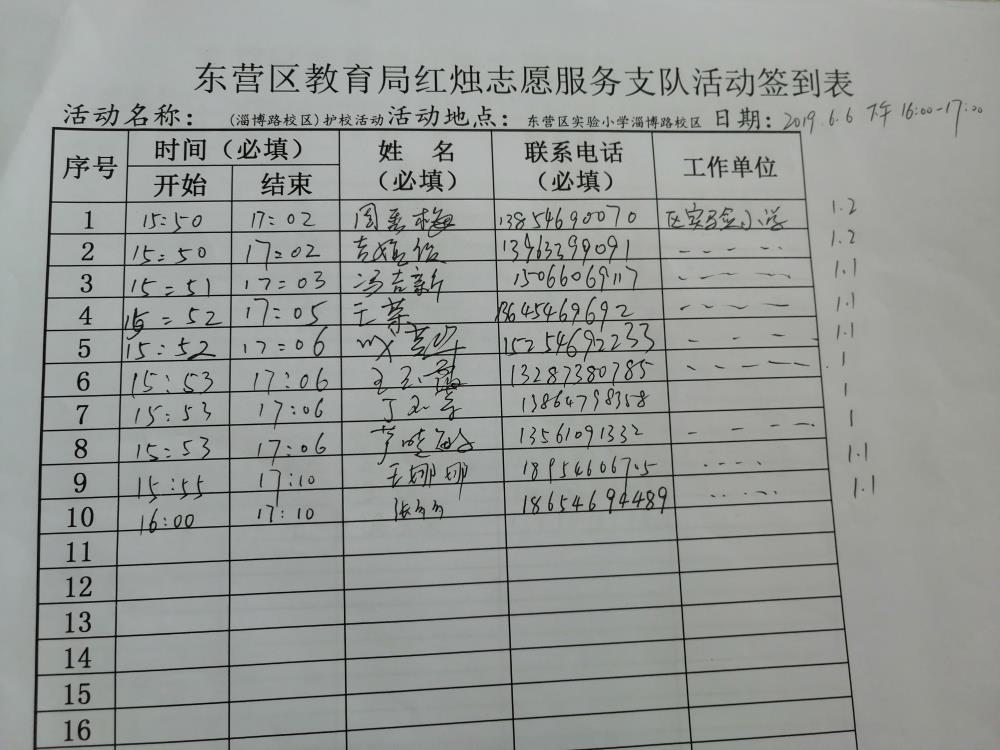 东营区教育局红烛志愿服务支队活动签到表
活动名称：(淄博路校区)护校活动 活动地点：东营区实验小学淄博路校区 日期：2019.6.6 下午 16:00-17:00
序号 时间（必填） 姓 名（必填） 联系电话（必填） 工作单位
开始 结束
1 15:50 17:02 周 梅 13854690070 区实验小学 1.2
2 15:50 17:02 13963299091 1.2
3 15:51 17:03 冯吉新 15066069117 1.1
4 15:52 17:05 王荣 13645469692 1.1
5 15:52 17:06 15254692233 1.1
6 15:53 17:06 王玉 13287380785 1
7 15:53 17:06 丁 13864798358 1
8 15:53 17:06 13561091332 1
9 15:55 17:10 王娜娜 1.1
10 16:00 17:10 张 18654694489 1.1
11
12
13
14
15
16